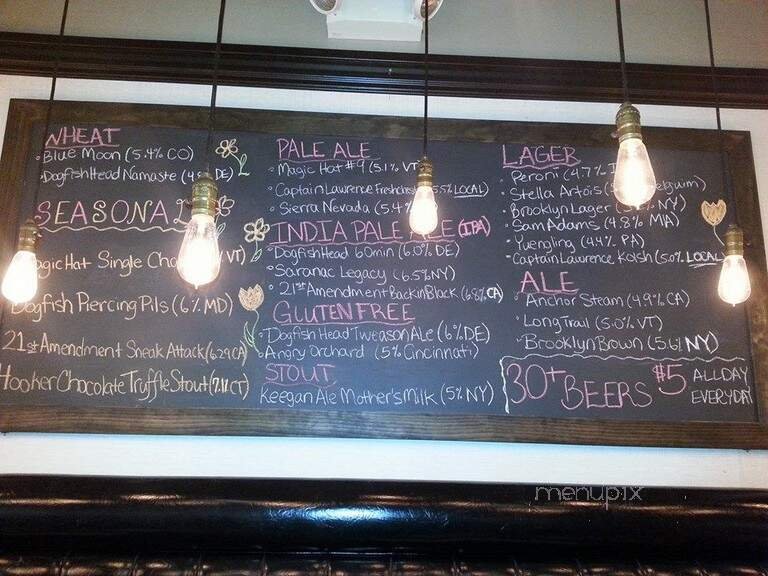 WHEAT
Blue Moon (5.4% CO)
Dogfish Head Namaste (4. DE)
SEASONAL
Magic Hat Single Cha VT)
Dogfish Piercing Pils (6% MD)
21st Amendment Sneak Attack (6.2% CA)
Hooker Chocolate Truffle Stout (7.1% CT)
PALE ALE
Magic Hat #9 (5.1% VT
Captain Lawrence Freshchest 5.5% LOCAL)
Sierra Nevada (5.4%
INDIA PALE ALE (IPA)
Dogfish Head 60min (6.0% DE)
Saranac Legacy (6.5% NY)
21st Amendment Back in Black (6.8% CA)
GLUTEN FREE
Dogfish Head Tweason Ale (6% DE)
Angry Orchard (5% Cincinnati)
STOUT
Keegan Ale Mother's Milk (5% NY)
LAGER
Peroni (4.7% I
Stella Artois (5 Belgium)
Brooklyn Lager ( NY)
Sam Adams (4.8% MA)
Yuengling (4.4% PA)
Captain Lawrence Kolsh (5.0% LOCAL
ALE
Anchor Steam (4.9% CA)
Long Trail (5.0% VT)
Brooklyn Brown (5.6% NY)
30+ BEERS $5 ALL DAY
EVERYDAY
menupix